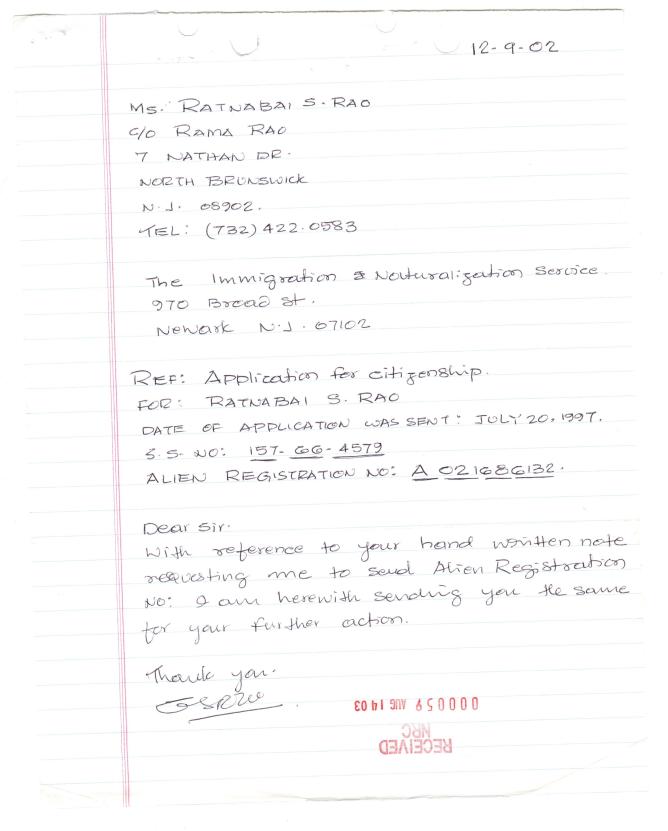 12-9-02
Ms. RATNABAI S. RAO
c/o RAMA RAO
7 NATHAN DR.
NORTH BRUNSWICK
N.J. 08902.
TEL: (732) 422.0583
The Immigration & Naturalization Service.
970 Broad St.
Newark N.J. 07102
REF: Application for citizenship.
FOR: RATNABAI S. RAO
DATE OF APPLICATION WAS SENT: JULY 20, 1997.
S.S. NO: 157-66-4579
ALIEN REGISTRATION NO: A 021686132.
Dear Sir.
With reference to your hand written note
requesting me to send Alien Registration
NO: I am herewith sending you the same
for your further action.
Thank you.
000059 AUG 14 03
NRC
RECEIVED